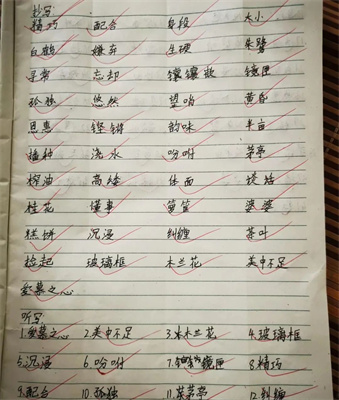 抄写:
精巧 配合 身段 大小
白鹤 嫌弃 生硬 朱鹭
寻常 忘却 镶镶嵌 镜匣
孤独 悠然 望哨 黄昏
恩惠 铿锵 韵味 半亩
播种 浇水 吩咐 茅亭
榨油 高矮 体面
桂花 懂事 箩筐 婆婆
糕饼 沉浸 纠缠 茶叶
捡起 玻璃框 木兰花 美中不足
爱慕之心
听写:
1.爱慕之心 2.美中不足 3.木兰花 4.玻璃框
5.沉浸 6.吩咐 7.镜匣 8.精巧
9.配合 10.孤独 11.茅亭 12.纠缠